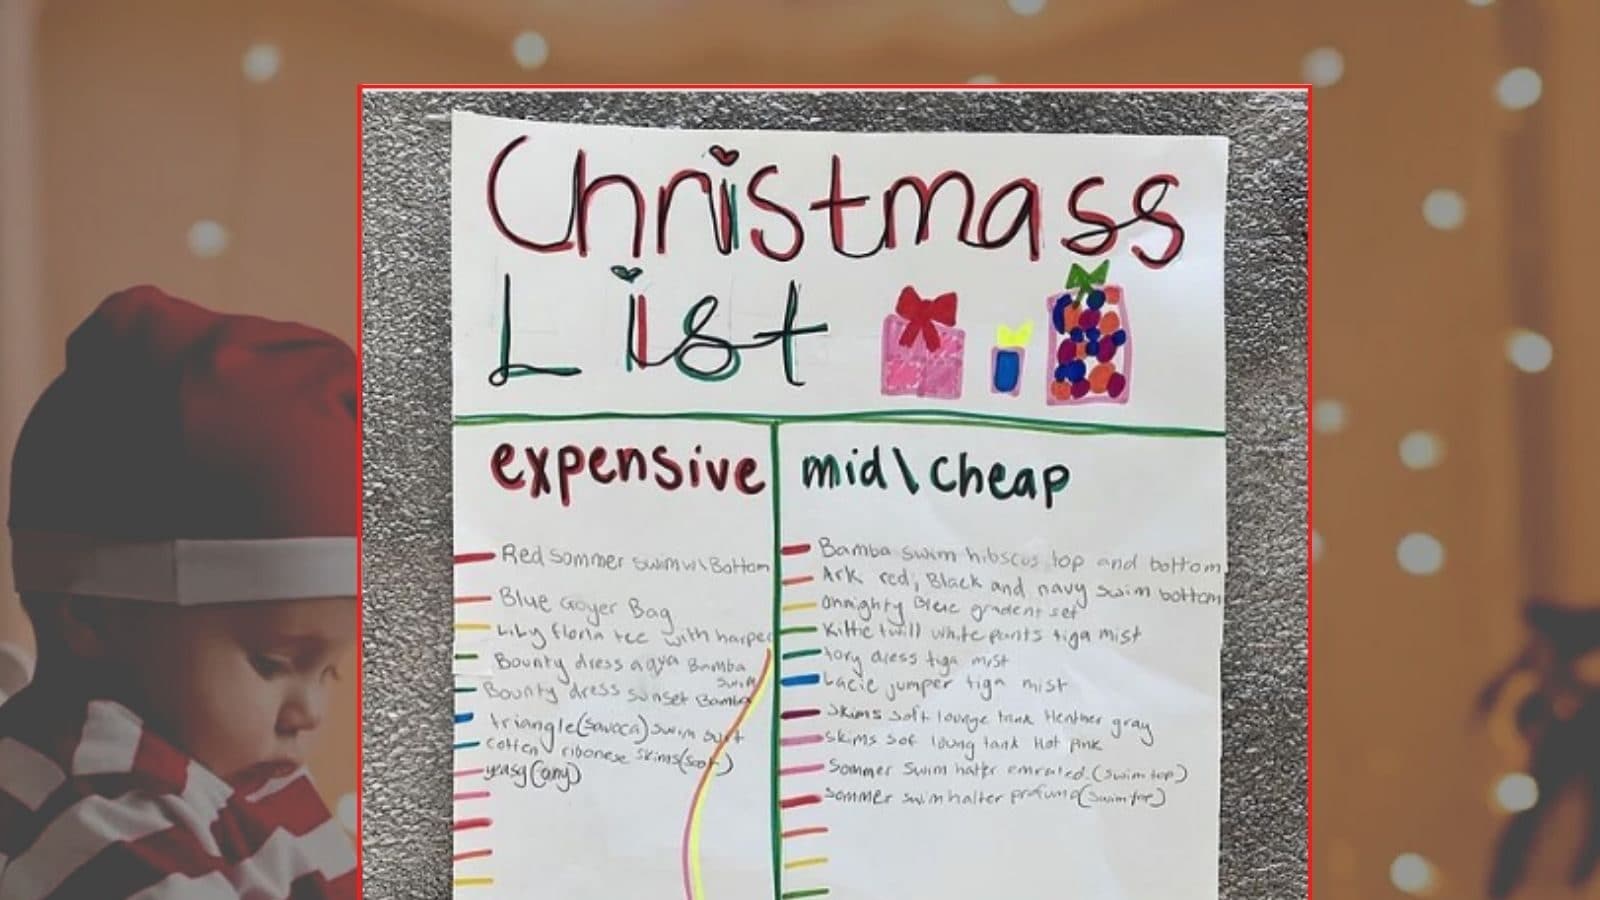 Christmass
List
expensive
mid\cheap
Red sommer swim w\ Bottom
Blue Goyer Bag
Lily floria tee with harper
Bounty dress aqua Bamba
swim
Bounty dress sunset Bamba
triangle (savaca) swim suit
cotten ribonese skims (soot)
yeasy (any)
Bamba swim hibscus top and bottom
Ark red, Black and navy swim bottom
onmighty Blue gradent set
Kittie twill white pants tiga mist
tory dress tiga mist
Lacie jumper tiga mist
Skims soft lounge tank Heather gray
skims sof loung tank Hot pink
Sommer swim halter (swim top)
sommer swim halter